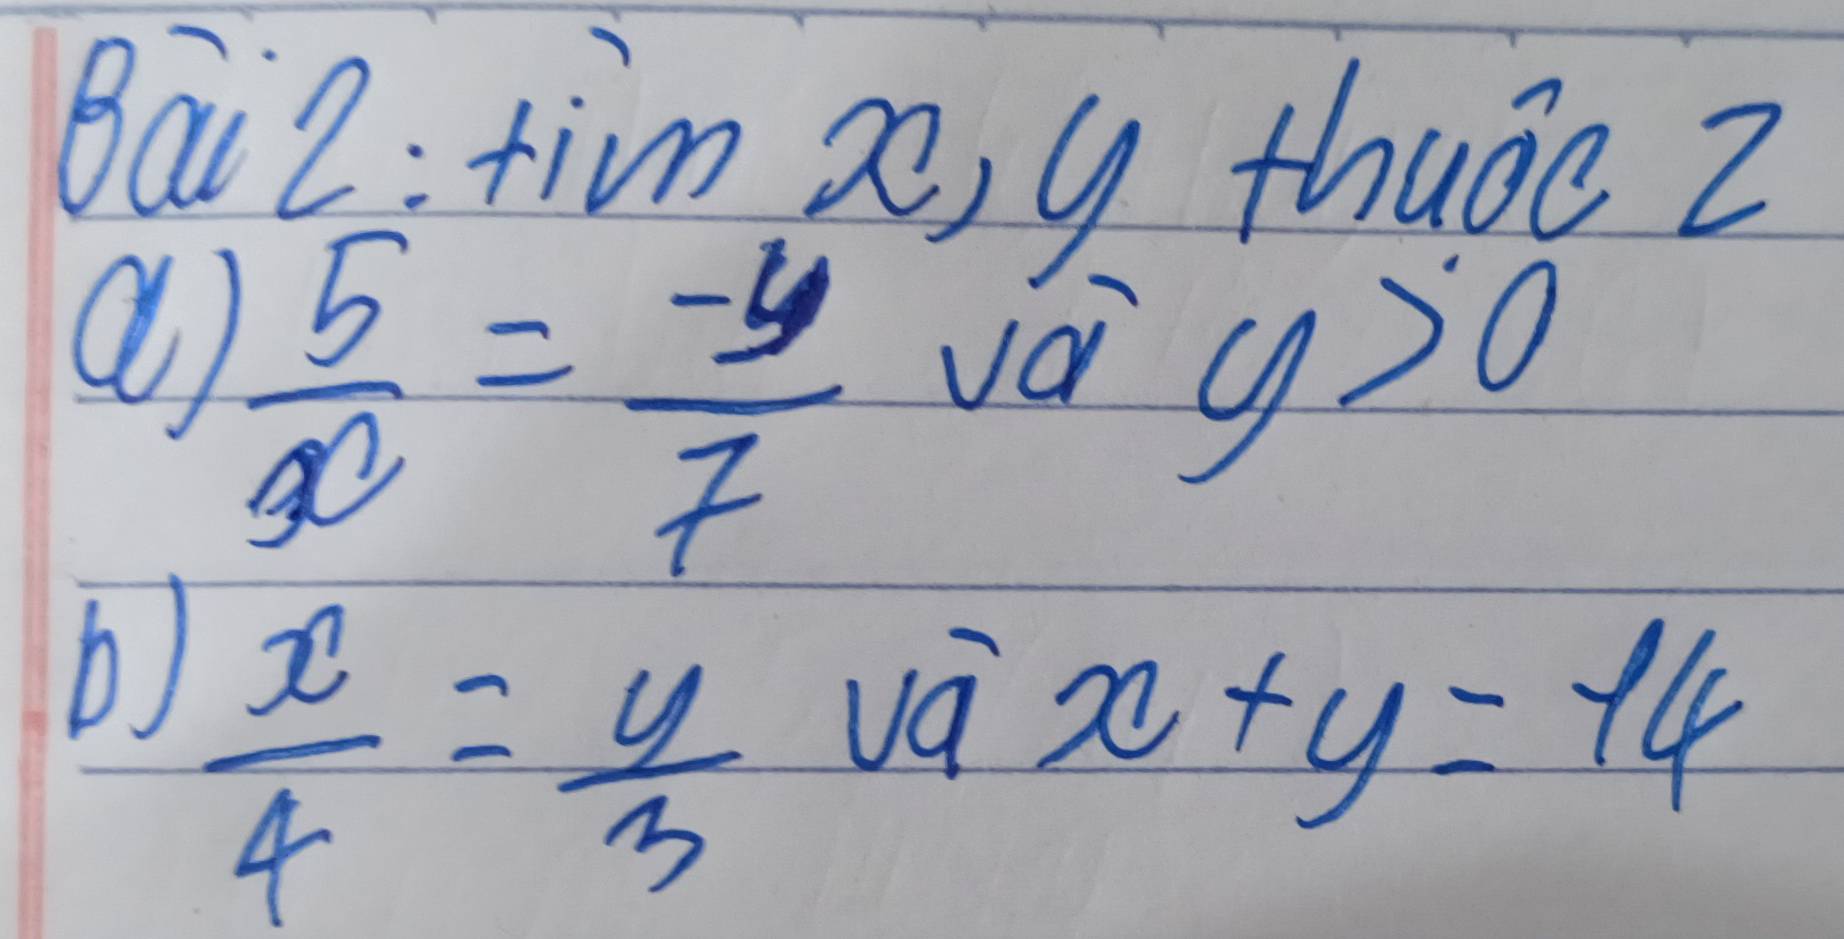 Bài 2: tìm x, y thuộc Z
a) 5/x = -y/7 và y > 0
b) x/4 = y/3 và x + y = 14